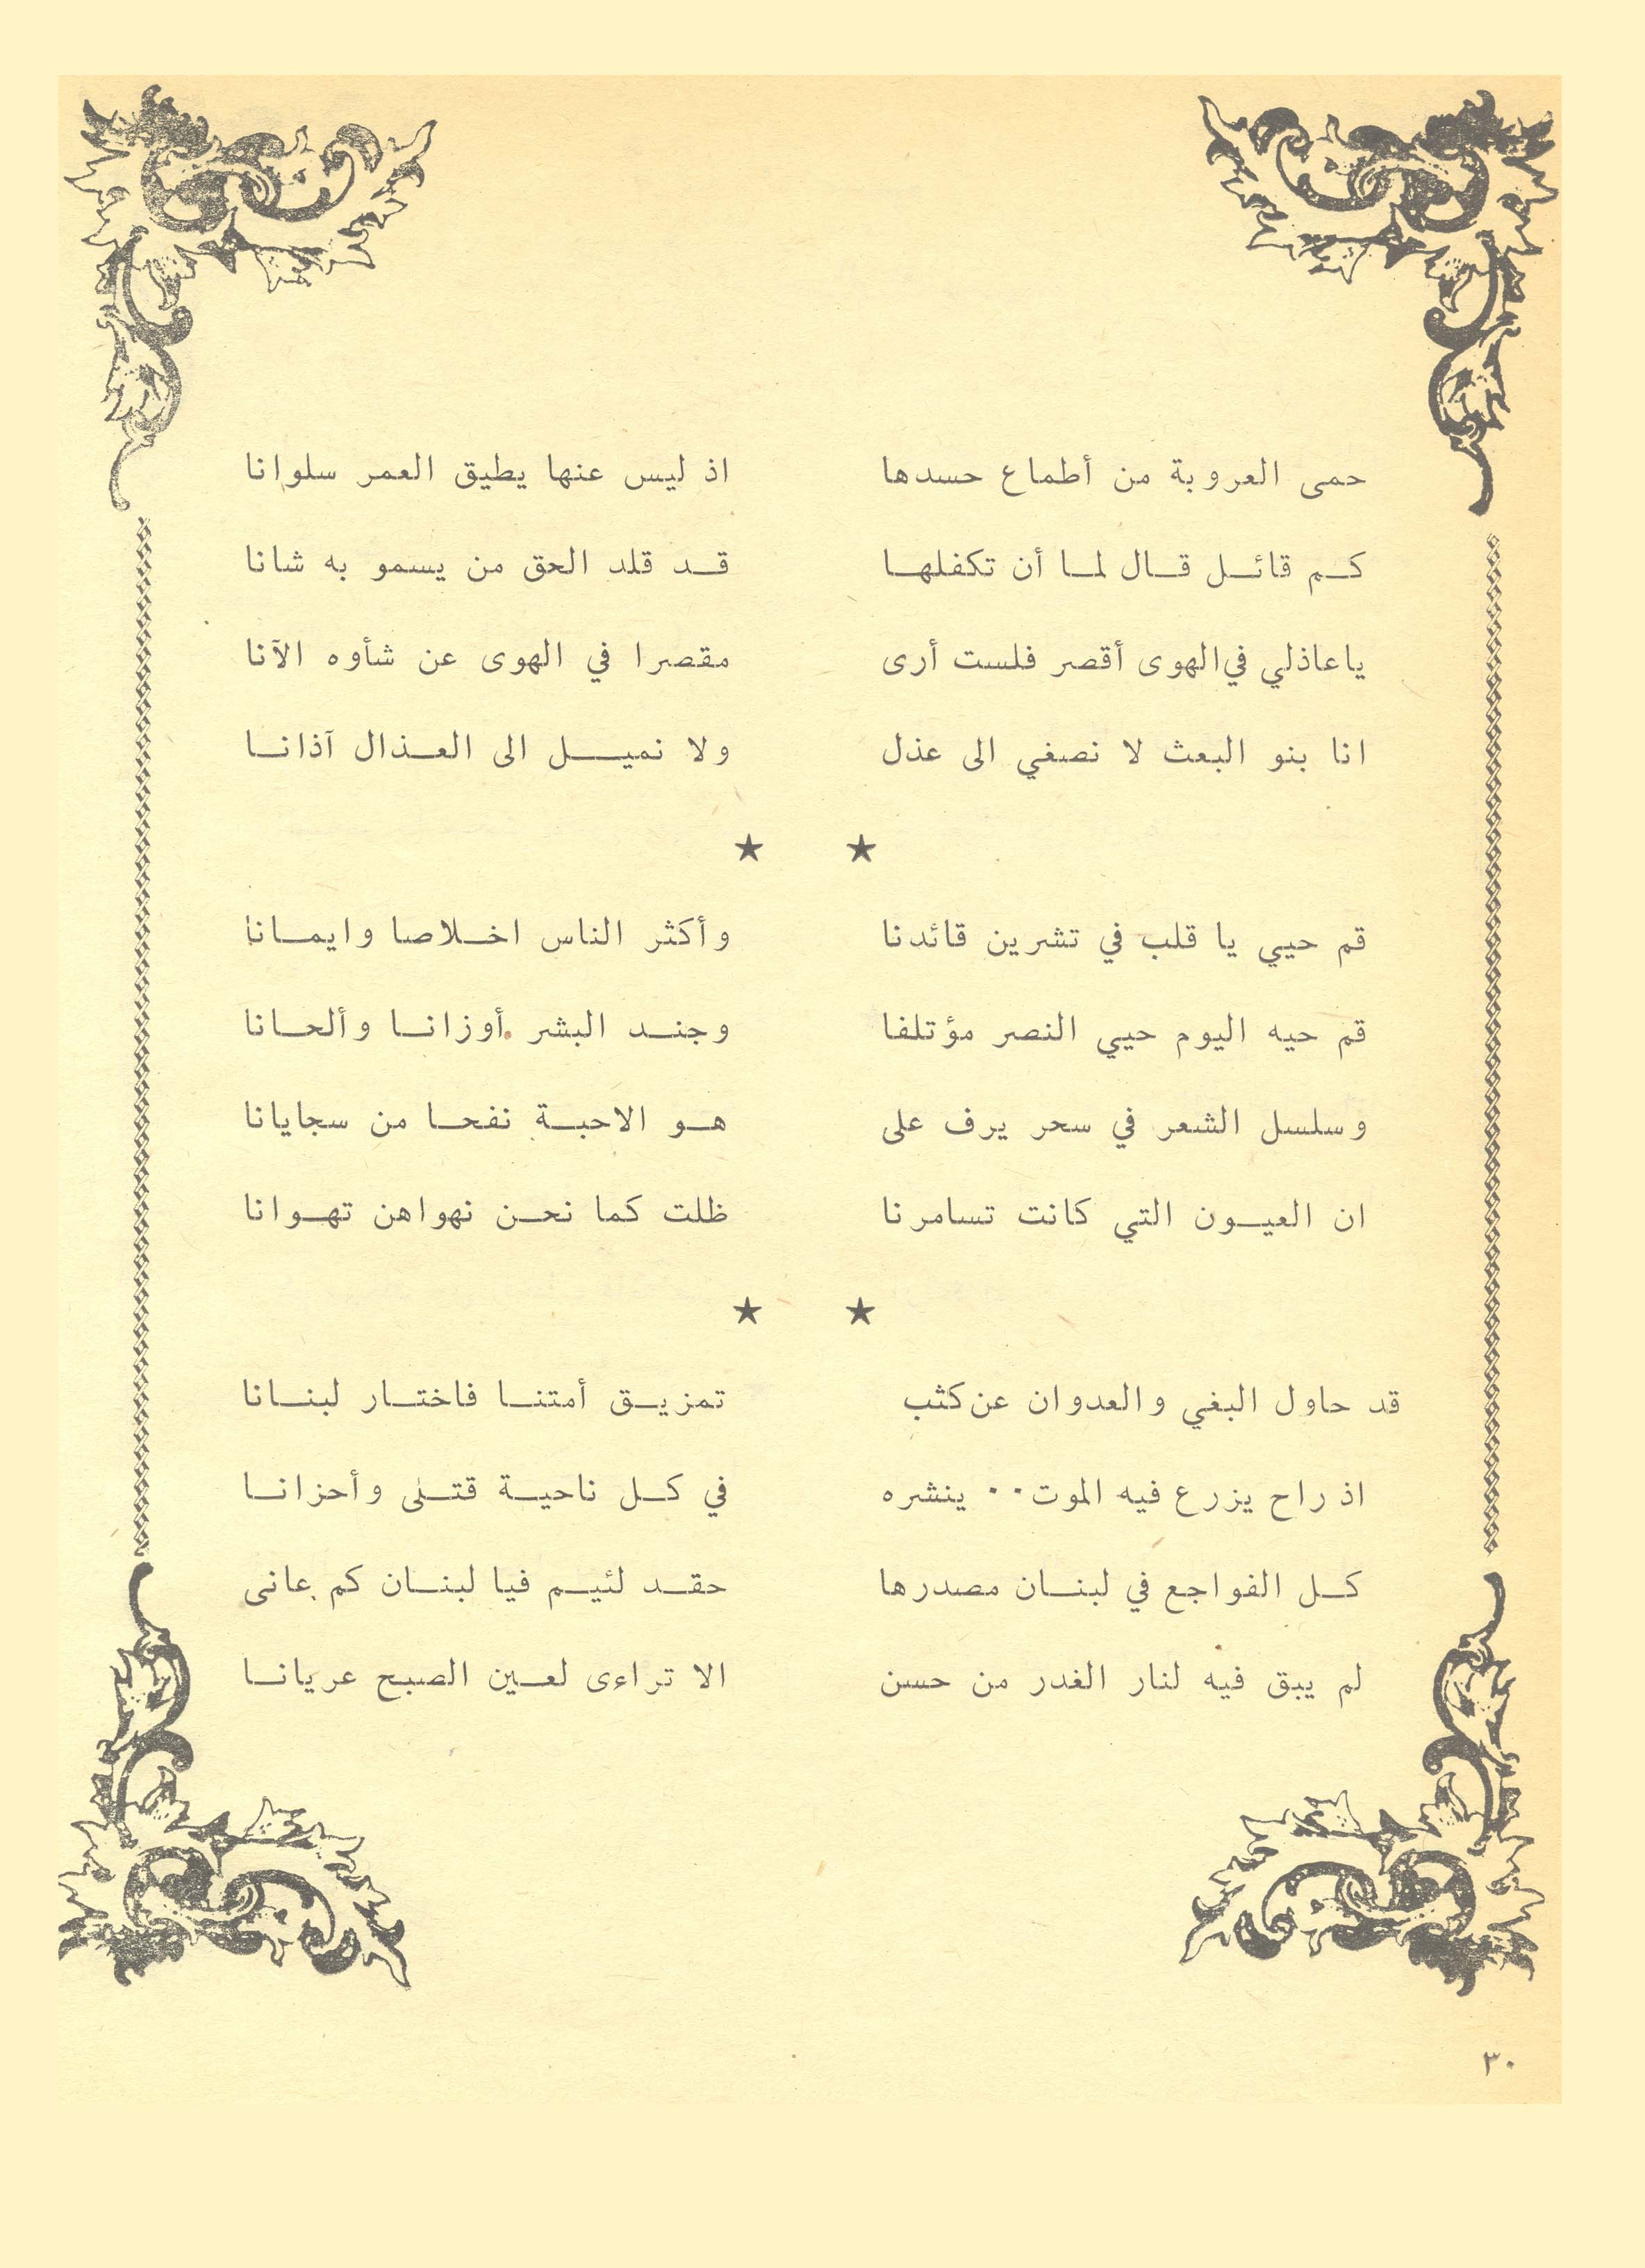 حمى العروبة من أطماع حسدها اذ ليس عنها يطيق العمر سلوانا
كم قائل قال لما أن تكفلها قد قلد الحق من يسمو به شانا
ياعاذلي في الهوى أقصر فلست أرى مقصرا في الهوى عن شأوه الآنا
انا بنو البعث لا نصغي الى عذل ولا نميل الى العذال آذانا
★ ★
قم حيي يا قلب في تشرين قائدنا وأكثر الناس اخلاصا وايمانا
قم حيه اليوم حيي النصر مؤتلفا وجند البشر أوزانا وألحانا
وسلسل الشعر في سحر يرف على هو الاحبة نفحا من سجايانا
ان العيون التي كانت تسامرنا ظلت كما نحن نهواهن تهوانا
★ ★
قد حاول البغي والعدوان عن كثب تمزيق أمتنا فاختار لبنانا
اذ راح يزرع فيه الموت ٠٠ ينشره في كل ناحية قتلى وأحزانا
كل الفواجع في لبنان مصدرها حقد لئيم فيا لبنان كم عانى
لم يبق فيه لنار الغدر من حسن الا تراءى لعين الصبح عريانا
٣٠